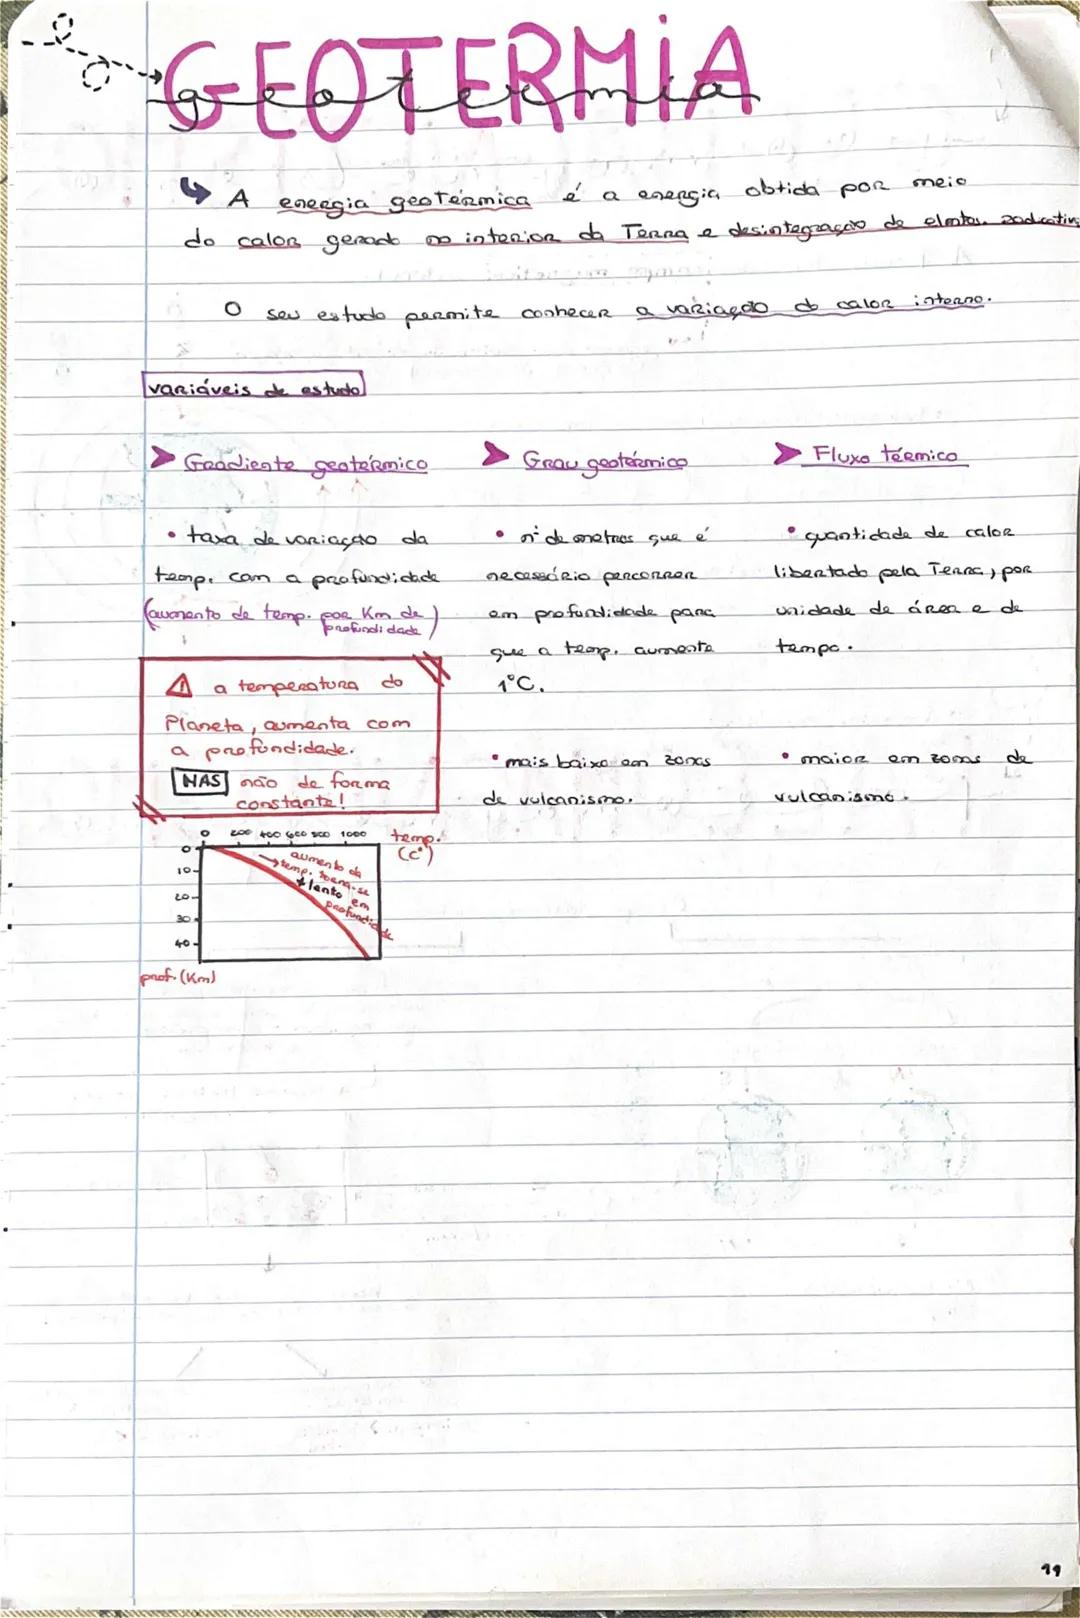 GEOTERMIA
geotermia
↳ A energia geotérmica é a energia obtida por meio
do calor gerado no interior da Terra e desintegração de elmtos. radioativos
O seu estudo permite conhecer a variação do calor interno.
variáveis de estudo
➤ Gradiente geotérmico
• taxa de variação da
temp. com a profundidade
(aumento de temp. por Km de
profundidade)
⚠ a temperatura do
Planeta, aumenta com
a profundidade.
MAS não de forma
constante!
0 200 400 600 800 1000 temp.
(c°)
0
10
20
30
40
prof. (Km)
→ aumento da
temp. torna-se
+ lento em
profundidade
➤ Grau geotérmico
• nº de metros que é
necessário percorrer
em profundidade para
que a temp. aumente
1°C.
• mais baixo em zonas
de vulcanismo.
➤ Fluxo térmico
• quantidade de calor
libertado pela Terra, por
unidade de área e de
tempo.
• maior em zonas de
vulcanismo.
11